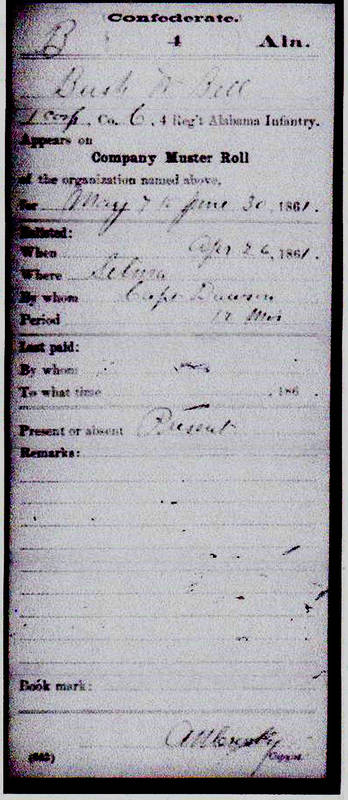 Confederate.
B 4 Ala.
Bush W Bell
1 Corp, Co. C, 4 Reg't Alabama Infantry.
Appears on
Company Muster Roll
of the organization named above,
for May 7 to June 30, 1861.
Enlisted:
When Apr 26, 1861.
Where Selma
By whom Capt Dawson
Period 12 Mos
Last paid:
By whom
To what time , 186 .
Present or absent Present
Remarks:
Book mark:
(642) Copyist.